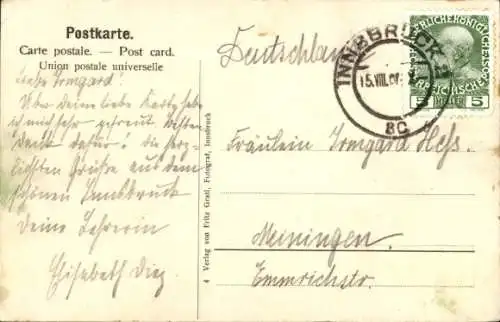 Postkarte.
Carte postale. — Post card.
Union postale universelle
Deutschland
INNSBRUCK 2
15.VIII.
8C
5 HELLER 5
Liebe Irmgard!
Über deine liebe Karte habe
ich mich sehr gefreut. Besten
Dank dafür! Die herz-
lichsten Grüße aus dem
schönen Innsbruck
Deine Lehrerin
Elisabeth Diez
4 Verlag von Fritz Gratl, Fotograf, Innsbruck
Fräulein Irmgard Hess.
Meiningen.
Emmrichstr.